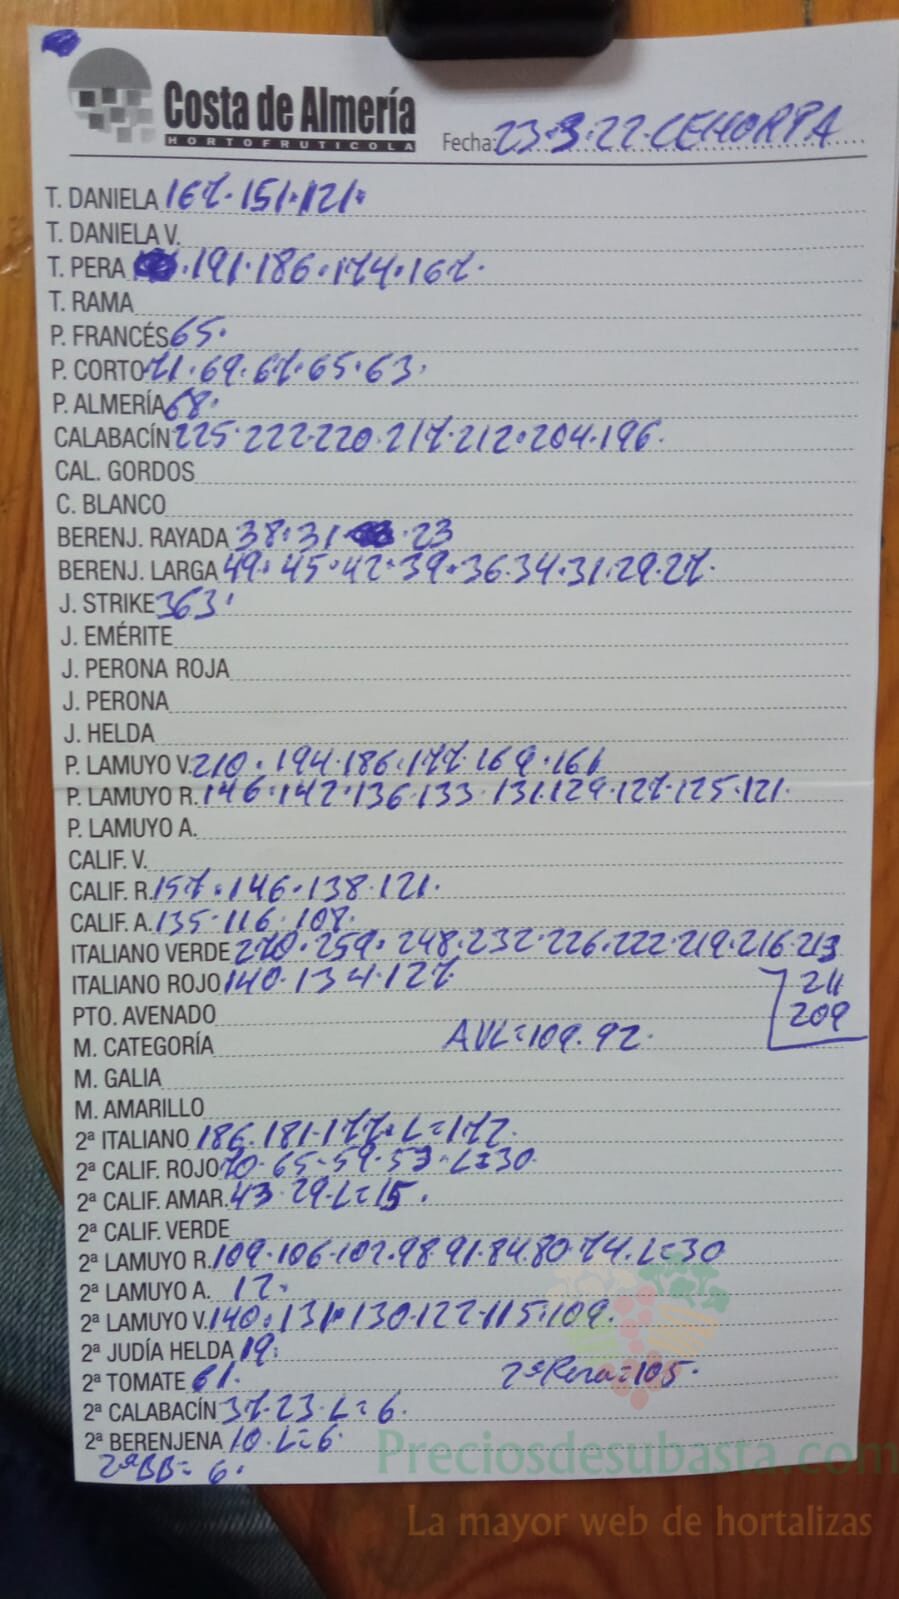 Costa de Almería
HORTOFRUTICOLA
Fecha: 23.3.22. CEHORPA
T. DANIELA 167.151.121.
T. DANIELA V.
T. PERA .191.186.174.167.
T. RAMA
P. FRANCÉS 65.
P. CORTO 71.69.67.65.63.
P. ALMERÍA 68.
CALABACÍN 225.222.220.217.212.204.196.
CAL. GORDOS
C. BLANCO
BERENJ. RAYADA 38.31 .23
BERENJ. LARGA 49.45.42.39.36.34.31.29.27.
J. STRIKE 363.
J. EMÉRITE
J. PERONA ROJA
J. PERONA
J. HELDA
P. LAMUYO V. 210.194.186.177.169.161
P. LAMUYO R. 146.142.136.133.131.129.127.125.121.
P. LAMUYO A.
CALIF. V.
CALIF. R. 157.146.138.121.
CALIF. A. 135.116.108.
ITALIANO VERDE 270.259.248.232.226.222.219.216.213
ITALIANO ROJO 140.134.127 211
PTO. AVENADO 209
M. CATEGORÍA AVL=109.92.
M. GALIA
M. AMARILLO
2ª ITALIANO 186.181.177.L=172.
2ª CALIF. ROJO 70.65.59.53.L=30.
2ª CALIF. AMAR. 43.29.L=15.
2ª CALIF. VERDE
2ª LAMUYO R. 109.106.102.98.91.84.80.74.L=30
2ª LAMUYO A. 12.
2ª LAMUYO V. 140.131.130.122.115.109.
2ª JUDÍA HELDA 19.
2ª TOMATE 61. 2ªPera=105.
2ª CALABACÍN 37.23.L=6.
2ª BERENJENA 10.L=6.
2ªBB=6.
Preciosdesubasta.com
La mayor web de hortalizas